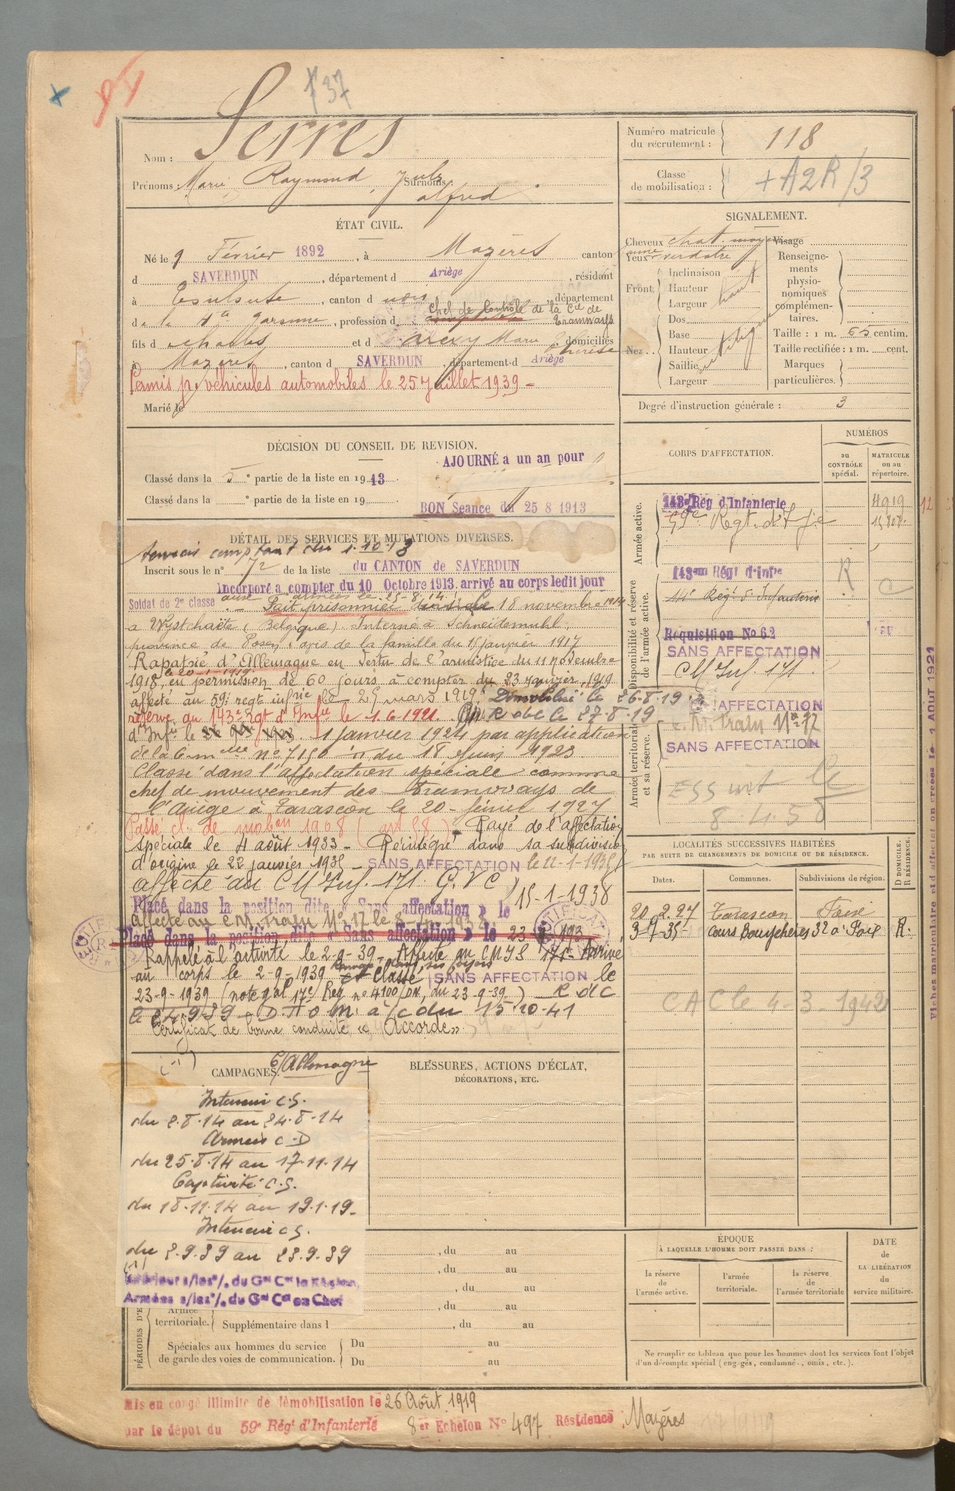 137
Nom : Serres
Prénoms : Marie Raymond, Jules Surnoms :
alfred
Numéro matricule du recrutement : 118
Classe de mobilisation : + A2R/3
ÉTAT CIVIL.
Né le 9 Février 1892, à Mazères canton
d SAVERDUN, département d Ariège, résidant
à Toulouse, canton d , département
d e la Hte garonne, profession d Chef de Contrôle de la Cie de
Tramways
fils d e Charles et d Marie Thérèse domiciliés
à Mazères, canton d SAVERDUN, département d Ariège
Permis pr véhicules automobiles le 25 Juillet 1939 -
Marié le
SIGNALEMENT.
Cheveux chat. moyen Visage
Yeux verdâtre
Front : Inclinaison
Hauteur haut
Largeur
Nez : Dos
Base
Hauteur
Saillie
Largeur
Renseignements physionomiques complémentaires.
Taille : 1 m. 62 centim.
Taille rectifiée : 1 m. cent.
Marques particulières.
Degré d'instruction générale : 3
DÉCISION DU CONSEIL DE REVISION.
AJOURNÉ a un an pour
Classé dans la 5 e partie de la liste en 1913
Classé dans la e partie de la liste en 19
BON Séance du 25 8 1913
DÉTAIL DES SERVICES ET MUTATIONS DIVERSES.
Services comptant du 1.10.13
Inscrit sous le n° 72 de la liste du CANTON de SAVERDUN
Incorporé a compter du 10 Octobre 1913. arrivé au corps ledit jour
Soldat de 2e classe aux armées le 25-8.14
Fait prisonnier 18 novembre 1914
a Wystchaëte (Belgique). Interné a Schneidemühl,
province de Posen, avis de la famille du 15 janvier 1917
Rapatrié d'Allemagne en vertu de l'armistice du 11 novembre
1918, le 20-1-1919 en permission de 60 jours à compter du 23 janvier 1919
affecté au 59e regt infrie le 25 mars 1919. Démobilisé le 26.8.19
réserve du 143e Rgt d'Infie le 1.6.1921. R dbc le 27-8-19
d'Infie le 1 janvier 1924 par application
de la C.m. elle n° 7150 du 18 Juin 1923
Classé dans l'affectation spéciale comme
chef de mouvement des Tramways de
l'Ariège à Tarascon le 20 février 1927
Passé cl. de mobon 1908 (art 58) Rayé de l'affectation
spéciale le 4 août 1933 - Réintégré dans sa subdivision
d'origine le 22 janvier 1935 - SANS AFFECTATION le 22-1-1935
affecté au CM Inf. 171 G V C 15-1-1938
Placé dans la position dite « Sans affectation » le
affecté au Train N° 17 le
Placé dans la position dite « Sans affectation » le 23
Rappelé à l'activité le 2-9-39. Affecté au CM I 171. Arrivé
au corps le 2-9-1939 classé SANS AFFECTATION le
23-9-1939 (note gal 17e Rég n° 4100/ , du 23-9-39) R d C
le 24.9.39 - D.  m. à /c du 15-10-41
Certificat de bonne conduite « Accordé »
CORPS D'AFFECTATION.
NUMÉROS
au CONTRÔLE spécial.
MATRICULE ou au répertoire.
Armée active.
143e Rég d'Infanterie 4919
59e Regt d'Infie
Disponibilité et réserve de l'armée active.
143em Régt d'Infie R C
14e Rég d'Infanterie
Requisition No 62
SANS AFFECTATION
CM Inf. 171
Armée territoriale et sa réserve.
SANS AFFECTATION
Train No 17
SANS AFFECTATION
8-4.58
Fiches matriculaire et d'affectation créées le 1 AOUT 1921
LOCALITÉS SUCCESSIVES HABITÉES
PAR SUITE DE CHANGEMENTS DE DOMICILE OU DE RÉSIDENCE.
Dates. Communes. Subdivisions de région. D DOMICILE. R RÉSIDENCE.
20.2.27 Tarascon Foix
3-7-35 Cours Bouychères 32 à Foix R.
C A C le 4-3-1942
CAMPAGNES. C/Allemagne
Intérieur C.S.
du 2.8.14 au 24.8.14
Armées C.D
du 25.8.14 au 17.11.14
Captivité C.S.
du 18.11.14 au 19.1.19
Intérieur C.S.
du 2.9.39 au 23.9.39
Intérieur s/les o/. du Gal Ct la Région.
Armées s/les o/. du Gal Ct en Chef
BLESSURES, ACTIONS D'ÉCLAT,
DÉCORATIONS, ETC.
, du au
, du au
, du au
, du au
Armée territoriale. Supplémentaire dans l , du au
Spéciales aux hommes du service de garde des voies de communication. Du au
Du au
ÉPOQUE
À LAQUELLE L'HOMME DOIT PASSER DANS :
la réserve de l'armée active.
l'armée territoriale.
la réserve de l'armée territoriale
DATE de LA LIBÉRATION du service militaire.
Ne remplir ce tableau que pour les hommes dont les services font l'objet
d'un décompte spécial (engagés, condamné-, omis, etc.).
Mis en congé illimité de démobilisation le 26 Août 1919
par le dépôt du 59e Régt d'Infanterie 8e Echelon No 497 Résidence : Mazères